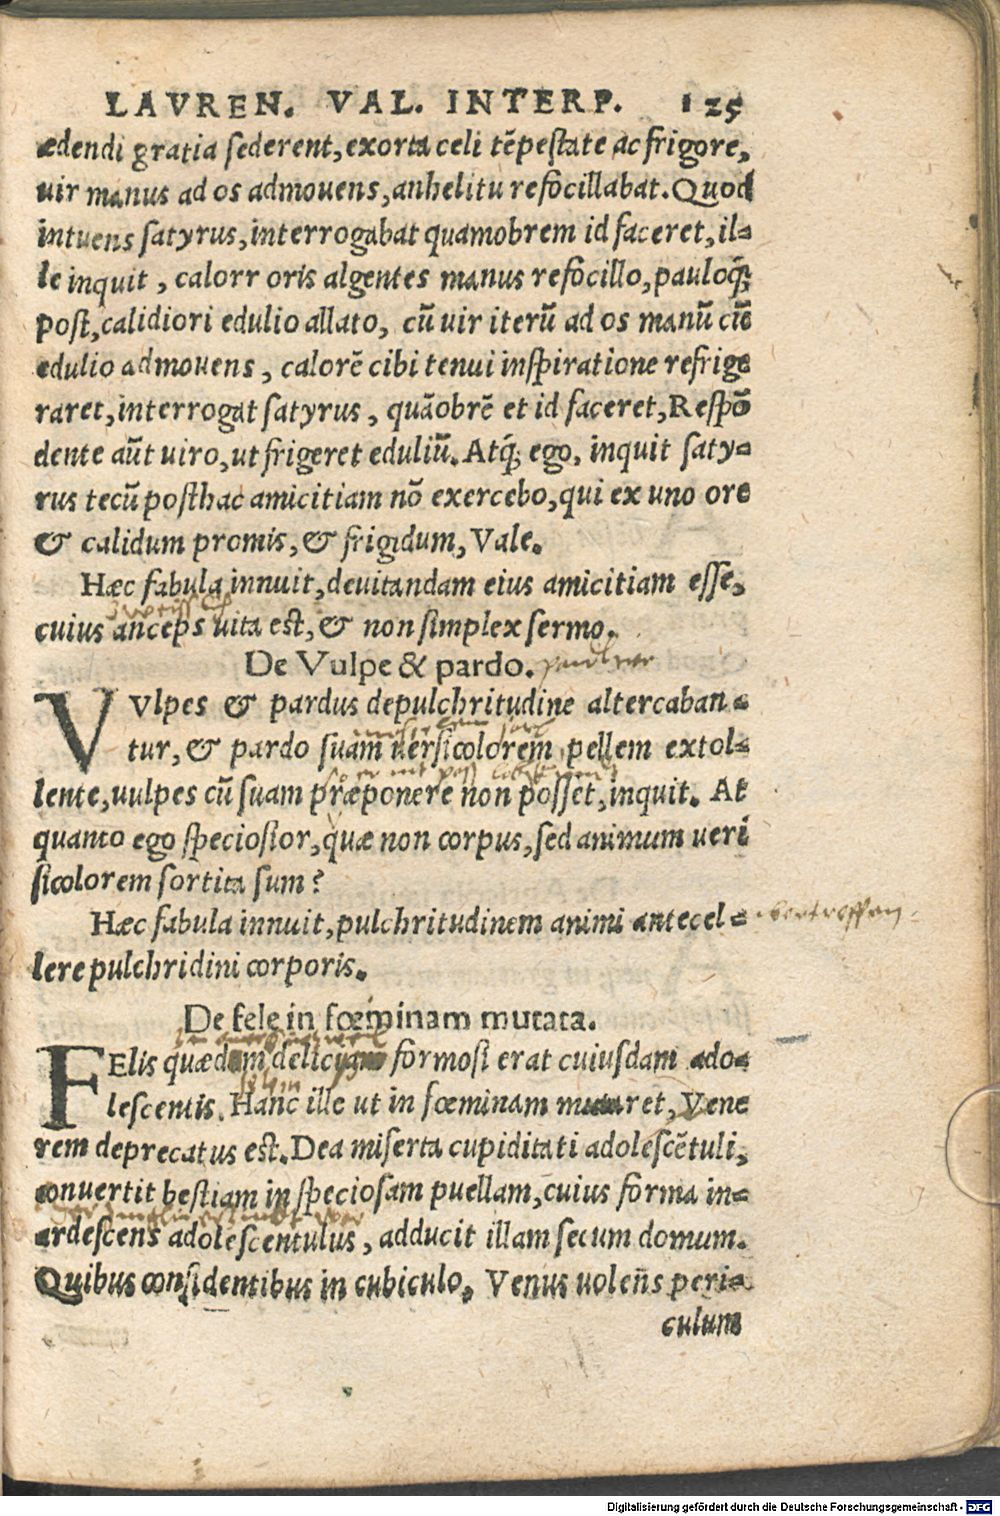 LAVREN. VAL. INTERP. 125
ædendi gratia sederent, exorta celi tẽpestate ac frigore,
uir manus ad os admouens, anhelitu refocillabat. Quod
intuens satyrus, interrogabat quamobrem id faceret, il-
le inquit, calorr oris algentes manus refocillo, pauloq́;
post, calidiori edulio allato, cũ uir iterũ ad os manũ cũ
edulio admouens, calorẽ cibi tenui inspiratione refrige
raret, interrogat satyrus, quãobrẽ et id faceret, Respõ
dente aũt uiro, ut frigeret eduliũ. Atq́; ego, inquit saty-
rus tecũ posthac amicitiam nõ exercebo, qui ex uno ore
& calidum promis, & frigidum, Vale.
Hæc fabula innuit, deuitandam eius amicitiam esse,
cuius anceps uita est, & non simplex sermo.
De Vulpe & pardo.
VVlpes & pardus de pulchritudine altercaban-
tur, & pardo suam uersicolorem pellem extol-
lente, uulpes cũ suam præponere non posset, inquit. At
quanto ego speciosior, quæ non corpus, sed animum uerſ
sicolorem sortita sum?
Hæc fabula innuit, pulchritudinem animi antecel-
lere pulchridini corporis.
De fele in fœminam mutata.
FElis quædam delicium formosi erat cuiusdam ado-
lescentis. Hanc ille ut in fœminam mutaret, Vene
rem deprecatus est. Dea miserta cupiditati adolescẽtuli,
conuertit bestiam in speciosam puellam, cuius forma in-
ardescens adolescentulus, adducit illam secum domum.
Quibus considentibus in cubiculo, Venus uolens peri-
culum
Digitalisierung gefördert durch die Deutsche Forschungsgemeinschaft - DFG